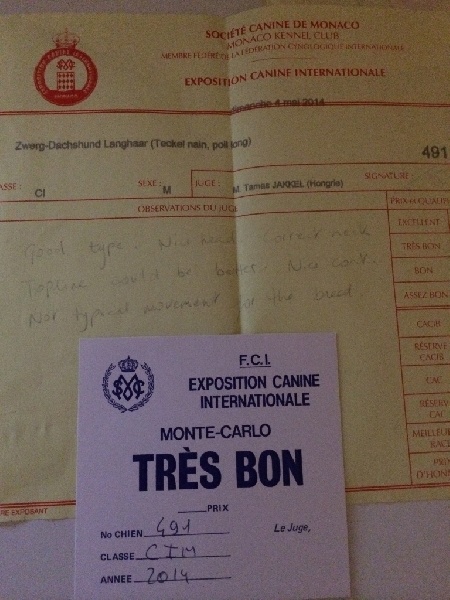 SOCIÉTÉ CANINE DE MONACO
MONACO KENNEL CLUB
MEMBRE FÉDÉRÉ DE LA FÉDÉRATION CYNOLOGIQUE INTERNATIONALE
EXPOSITION CANINE INTERNATIONALE
dimanche 4 mai 2014
Zwerg-Dachshund Langhaar (Teckel nain, poil long)
491
ASSE: CI SEXE: M JUGE: M. Tamas JAKKEL (Hongrie) SIGNATURE:
OBSERVATIONS DU JUGE
PRIX ou QUALIF
EXCELLENT
TRÈS BON
BON
ASSEZ BON
CACIB
RÉSERVE CACIB
CAC
RÉSERVE CAC
MEILLEUR RACE
PRIX D'HONN
Good type. Nice head. Correct neck
Topline could be better. Nice coat.
Not typical movement for the breed
RE EXPOSANT
F.C.I.
EXPOSITION CANINE
INTERNATIONALE
MONTE-CARLO
TRÈS BON
PRIX
No CHIEN 491 Le Juge,
CLASSE CIM
ANNÉE 2014